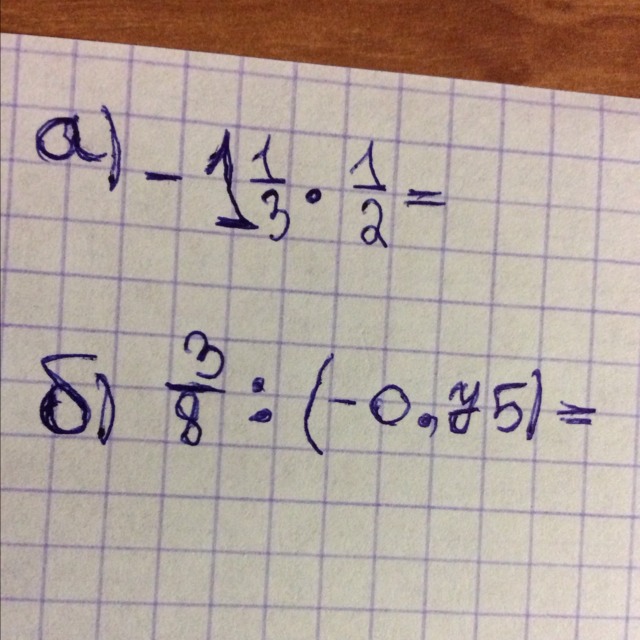 а) - 1 1/3 · 1/2 =
б) 3/8 : (-0,75) =